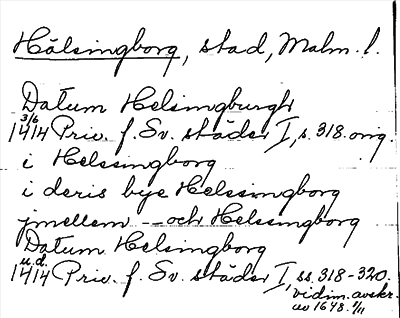 Hälsingborg, stad, Malm. l.
Datum Helsingburgh
3/6
1414 Priv. f. Sv. städer I, s. 318. orig.
i Helssingborg
i deris bye Helsssingborg
jmellem – och Helssingborg
Datum Helsingborg
u.d.
1414 Priv. f. Sv. städer I, ss. 318-320.
vidim. avskr.
av 1648. 1/11